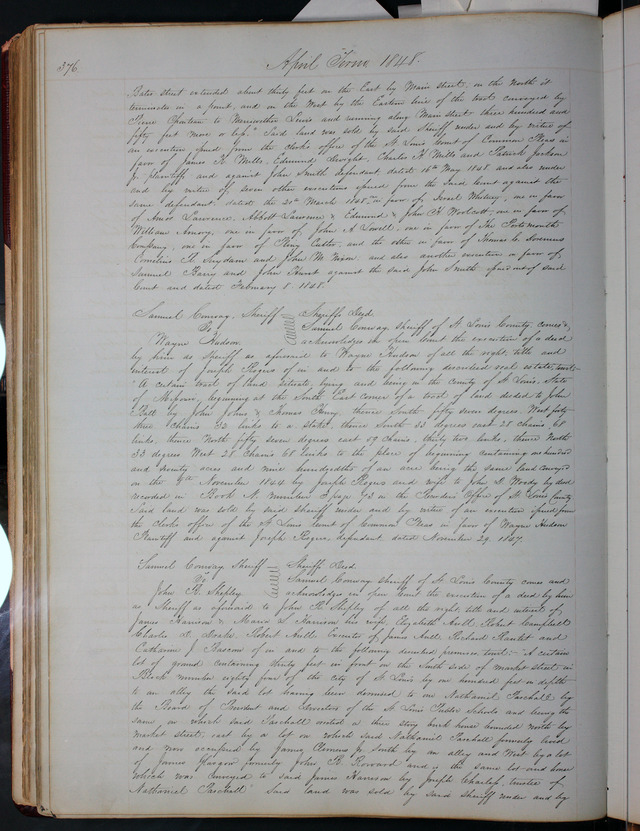 376
April Term 1848.
Bates street extended about thirty feet on the East by Main street, on the North it
terminates in a point, and on the West by the Eastern line of the tract conveyed by
Pierre Chouteau to Meriwether Lewis and running along Main street three hundred and
fifty feet more or less." Said land was sold by said Sheriff under and by virtue of
an execution issued from the clerks office of the St Louis Court of Common Pleas in
favor of James K Mills, Edmund Dwight, Charles H Mills and Patrick Jackson
Jr plaintiffs and against John Smith defendant dated 16th May 1848 and also under
and by virtue of seven other executions issued from the said Court against the
same defendant, dated the 20th March 1848, one in favor of Israel Whitney, one in favor
of Amos Lawrence, Abbott Lawrence & Edmund & John H Wolcott, one in favor of
William Amory, one in favor of John A Lowell, one in favor of The Portsmouth
Company, one in favor of Pliny Cutler, and the other in favor of Thomas C. Doremus
Cornelius R. Suydam and John M. Nixon, and also another execution in favor of
Samuel Barry and John Hurst against the said John Smith issued out of said
Court and dated February 8. 1848.
Samuel Conway, Sheriff
To
Wayne Hudson
Sheriffs Deed
Samuel Conway, Sheriff of St Louis County comes &
acknowledges in open Court the execution of a deed
by him as Sheriff as aforesaid to Wayne Hudson of all the right, title and
interest of Joseph Rogers of in and to the following described real estate, towit-
"A certain tract of Land situate, lying and being in the County of St Louis, State
of Missouri, beginning at the South East corner of a tract of land deeded to John
Ball by John Johns & Thomas Henry, thence South fifty seven degrees, West fifty
three chains 32 links to a stake, thence South 33 degrees east 28 chains, 68
links, thence North fifty seven degrees east 59 chains, thirty two links, thence North
33 degrees West 28 chains 68 links to the place of beginning containing one hundred
and seventy acres and nine hundredths of an acre being the same land conveyed
on the 9th November 1844 by Joseph Rogers and wife to John D. Woody by deed
recorded in Book N. number 3 page 93 in the Recorders Office of St Louis County
Said land was sold by said Sheriff under and by virtue of an execution issued from
the clerks office of the St Louis Court of Common Pleas in favor of Wayne Hudson
Plaintiff and against Joseph Rogers, defendant, dated November 29. 1847.
Samuel Conway Sheriff
To
John R. Shepley
Sheriffs Deed
Samuel Conway sheriff of St Louis County comes and
acknowledges in open Court the execution of a deed by him
as Sheriff as aforesaid to John R. Shepley of all the right, title and interest of
James Harrison & Maria L Harrison his wife, Elizabeth Aull, Robert Campbell
Charles D. Drake, Robert Aull Executor of James Aull, Richard Ranlet and
Catharine J Pascom of in and to the following described premises, towit:- "A certain
lot of ground containing thirty feet in front on the South side of market street in
Block number eighty four of the city of St Louis by one hundred feet in depth
to an alley the said lot having been demised to one Nathaniel Paschall by
the Board of President and Directors of the St Louis Public Schools and being the
same on which said Paschall erected a three story brick house bounded North by
market street, east by a lot on which said Nathaniel Paschall formerly lived
and now occupied by James Clemens Jr South by an alley and West by a lot
of James Glasgow formerly John B. Rowood and is the same lot and house
which was conveyed to said James Harrison by Joseph Charless, trustee of
Nathaniel Paschall" Said land was sold by said sheriff under and by